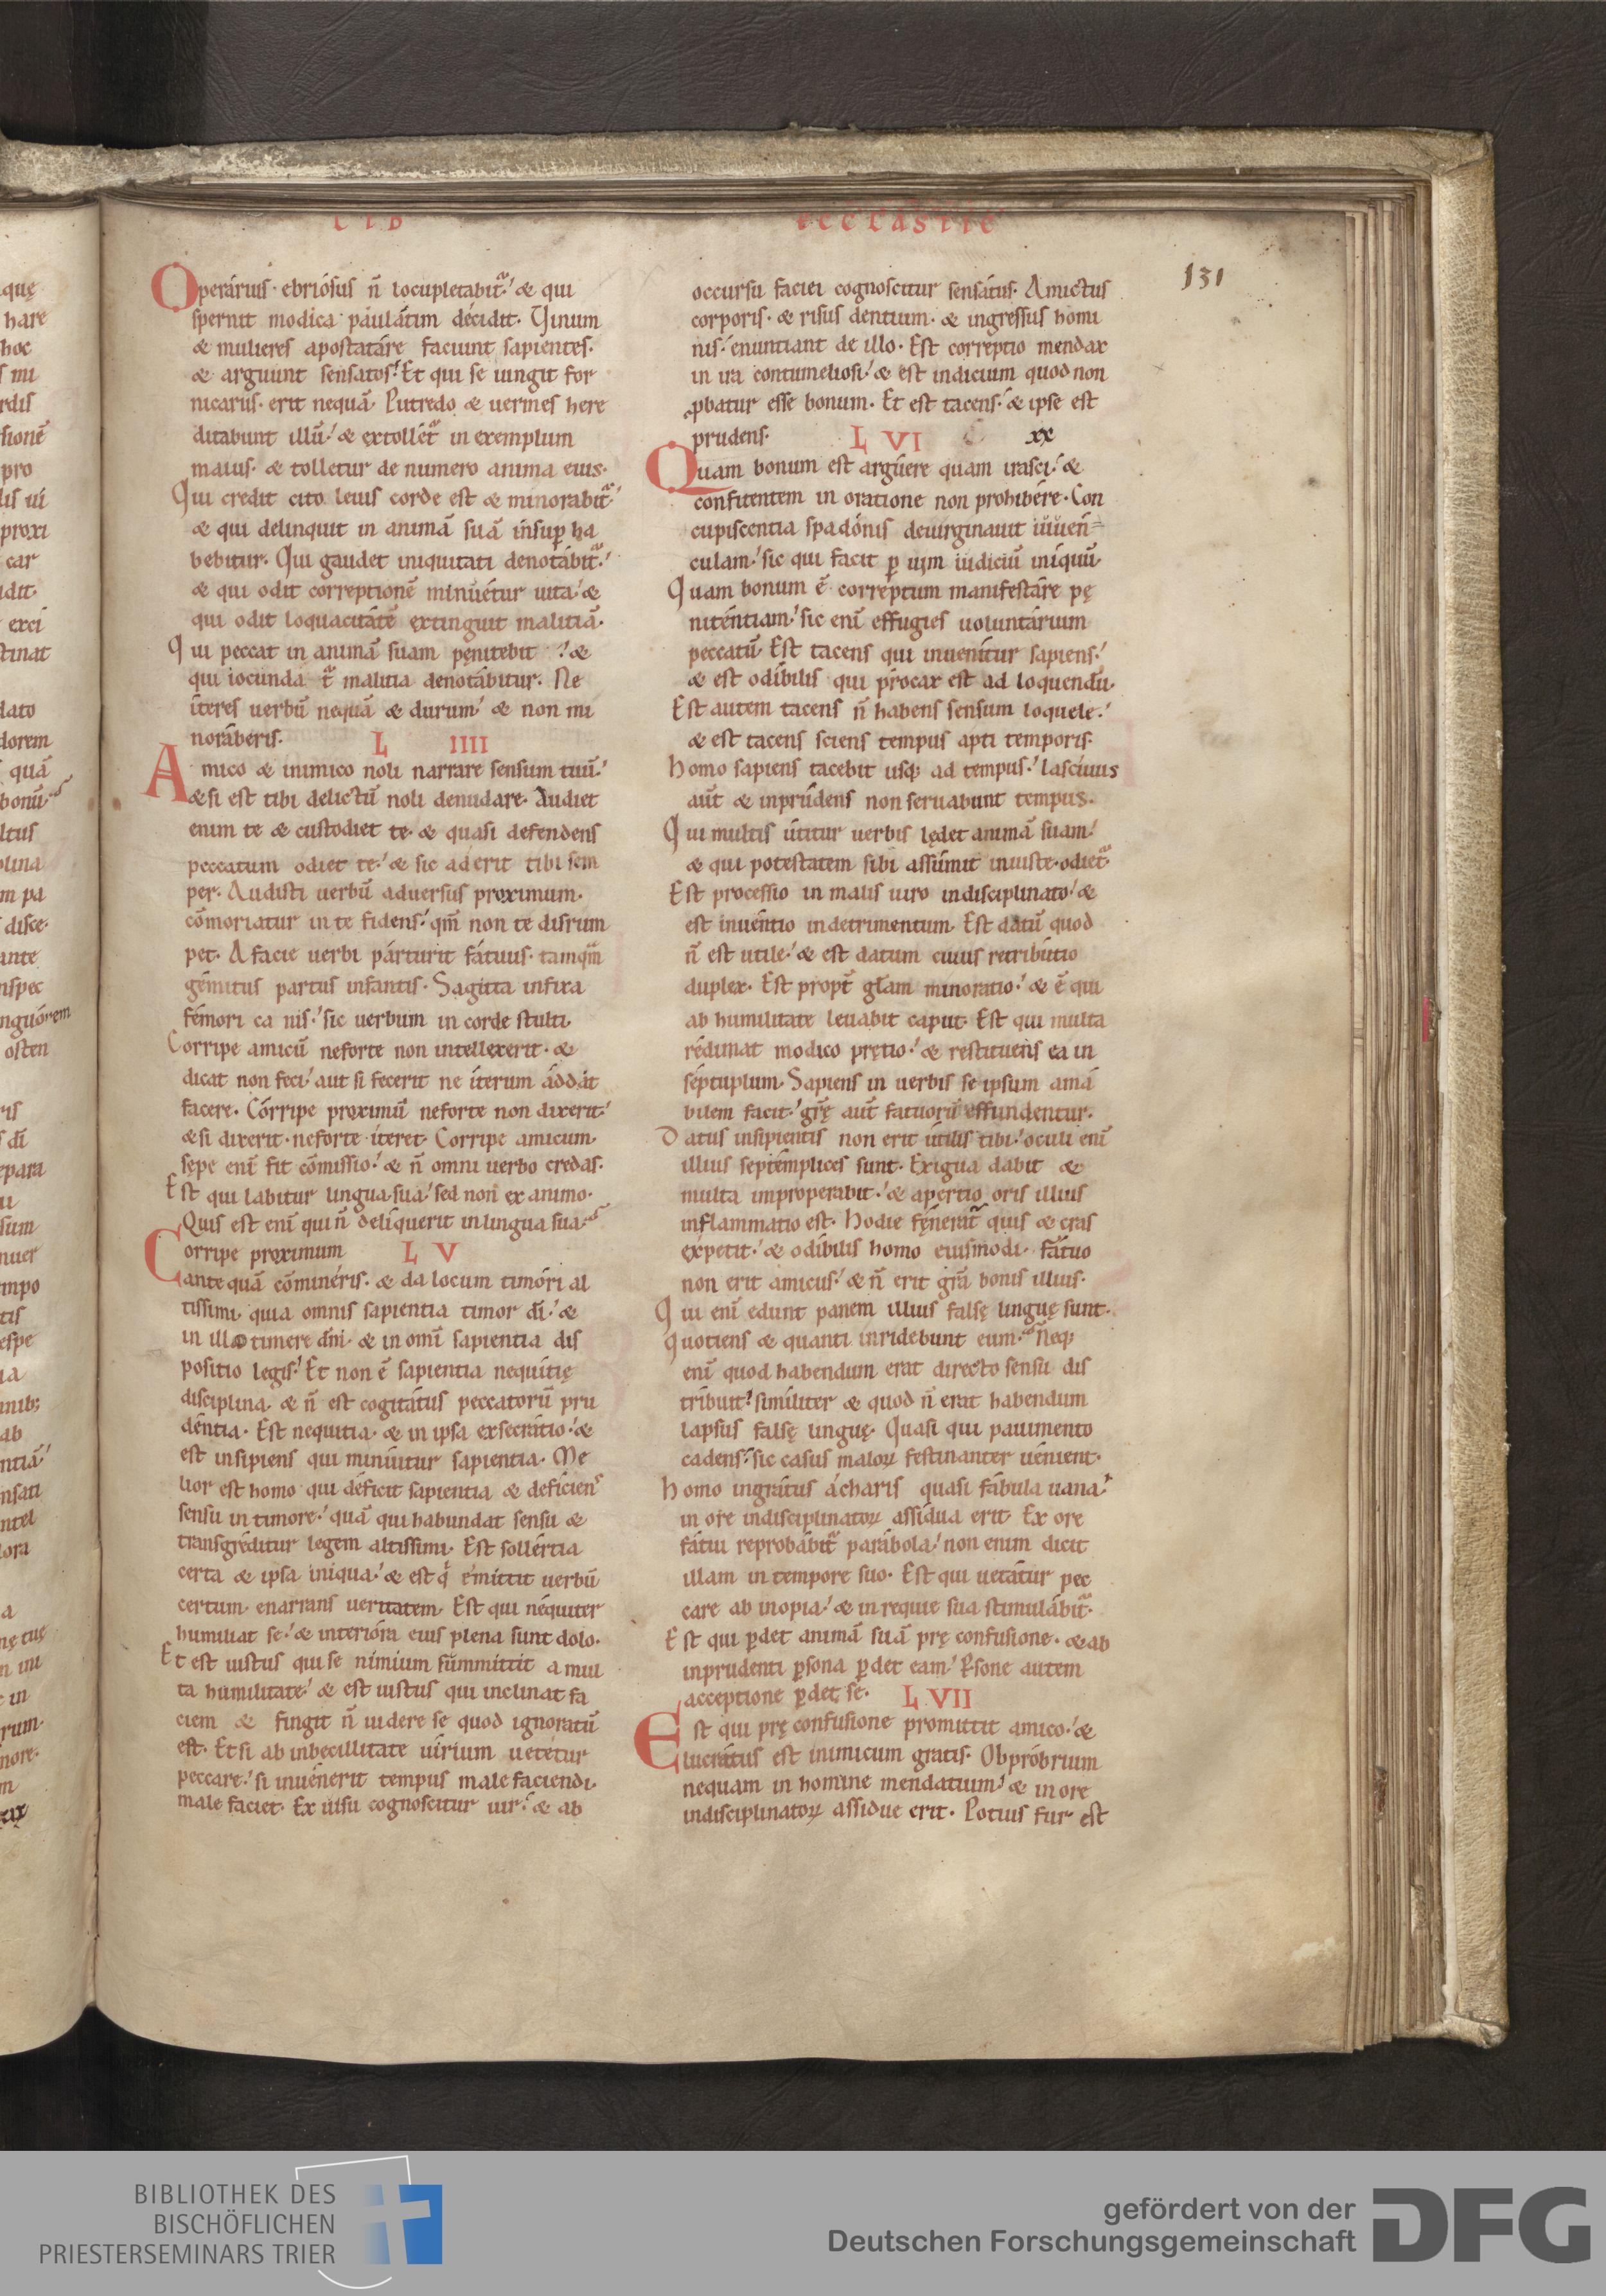 LIB
ecclastic
131
Operárius ebriósus n̄ locupletabit᷑. & qui
spernit modica paulátim décidit. Vinum
& mulieres apostatáre faciunt sapientes.
& arguunt sensatos. Et qui se iungit for
nicariis. erit nequā. Putredo & uermes here
ditabunt illū. & extollet᷑ in exemplum
maius. & tolletur de numero anima eius.
Qui credit cito. leuis corde est & minorabit᷑.
& qui delinquit in animā suā insuꝑ ha
bebitur. Qui gaudet iniquitati denotábit᷑.
& qui odit correptionē minuétur uita. &
qui odit loquacitátē extinguit malitiā.
Qui peccat in animā suam pęnitebit. &
qui iocunda t᷑ malitia denotábitur. Ne
íteres uerbū nequā & durum. & non mi
noráberis. L IIII
Amico & inimico noli narrare sensum tuū.
& si est tibi delictū noli denudare. Audiet
enim te & custodiet te. & quasi defendens
peccatum odiet te. & sic aderit tibi sem
per. Audisti uerbū aduersus proximum.
cōmoriatur in te fidens. qm̄ non te disrum
pet. A facie uerbi párturit fátuus. tamqm̄
gémitus partus infantis. Sagitta infixa
fémori ca nis. sic uerbum in corde stulti.
Corripe amicū neforte non intellexerit. &
dicat non feci. aut si fecerit ne íterum áddat
facere. Córripe proximū neforte non dixerit.
& si dixerit. neforte íteret. Corripe amicum.
sępe enī fit cōmissio. & n̄ omni uerbo credas.
Est qui labitur lingua sua. sed non ex animo.
Quis est enī qui n̄ delíquerit in lingua sua.
Corripe proximum L V
ante quā cōminéris. & da locum timóri al
tissimi. quia omnis sapientia timor dī. &
in illa timere dn̄i. & in omī sapientia dis
positio legis. Et non ē sapientia nequítię
disciplina. & n̄ est cogitátus peccatorū pru
déntia. Est nequitia. & in ipsa exsecrátio. &
est insipiens qui minúitur sapientia. Me
lior est homo qui déficit sapientia & deficiens
sensu in timore. quā qui habundat sensu &
transgréditur legem altissimi. Est sollértia
certa & ipsa iniqua. & est q̇ émittit uerbū
certum. enarrans ueritatem. Est qui néquiter
humiliat se. & interióra eius plena sunt dolo.
Et est iustus qui se nimium summittit a mul
ta humilitate. & est iustus qui inclinat fa
ciem & fingit n̄ uidere se quod ignoratū
est. Et si ab inbecillitate uírium uetétur
peccare. si inuénerit tempus male faciendi.
male faciet. Ex uisu cognoscitur uir. & ab
occursu faciei cognoscitur sensátus. Amictus
corporis. & risus dentium. & ingressus homi
nis. enuntiant de illo. Est corréptio mendax
in ira contumeliosi. & est indicium quod non
ꝓbatur esse bonum. Et est tacens. & ipse est
prudens. L VI xx
Quam bonum est argúere quam irasci. &
confitentem in oratione non prohibére. Con
cupiscentia spadónis deuirginauit iúuen
culam. sic qui facit ꝑ uim iudiciū iniquū.
Quam bonum ē correptum manifestáre pę
niténtiam. sic enī effugies uoluntárium
peccatū. Est tacens qui inuenítur sapiens.
& est odíbilis qui prócax est ad loquendū.
Est autem tacens n̄ habens sensum loquele.
& est tacens sciens tempus apti temporis.
Homo sapiens tacebit usq; ad tempus. lascíuus
aut̄ & inprúdens non seruabunt tempus.
Qui multis útitur uerbis lędet animā suam.
& qui potestatem sibi assúmit iniuste. odiet᷑.
Est processio in malis uiro indisciplinato. &
est inuéntio in detrimentum. Est datū quod
n̄ est utile. & est datum cuius retribútio
duplex. Est propt̄ gl̄am minoratio. & ē qui
ab humilitate leuabit caput. Est qui multa
rédimat modico prętio. & restituens ea in
séptuplum. Sapiens in uerbis se ipsum amá
bilem facit. gr̄ę aut̄ fatuorū effundentur.
Datus insipientis non erit útilis tibi. oculi enī
illius septémplices sunt. Exigua dabit &
multa improperabit. & apertio oris illius
inflammatio est. Hodie fęnerat᷑ quis & cras
éxpetit. & odíbilis homo eiusmodi. fátuo
non erit amicus. & n̄ erit gr̄a bonis illius.
Qui enī edunt panem illius falsę linguę sunt.
quotiens & quanti inridebunt eum. Neq;
enī quod habendum erat directo sensu dis
tríbuit. simíliter & quod n̄ erat habendum
lapsus falsę linguę. Quasi qui pauimento
cadens. sic casus maloꝝ festinanter uénient.
Homo ingrátus ácharis quasi fábula uana.
in ore indisciplinatoꝝ assídua erit. Ex ore
fátui reprobábit᷑ parábola. non enim dicit
illam in tempore suo. Est qui uetátur pec
care ab inopia. & in requie sua stimulábit᷑.
Est qui ꝑdet animā suā prę confusione. & ab
inprudenti ꝑsona ꝑdet eam. Ꝑsone autem
acceptione ꝑdet se. L VII
Est qui prę confusione promittit amico. &
lucrátus est inimicum gratis. Obpróbrium
nequam in homine mendatium. & in ore
indisciplinatoꝝ assidue erit. Potius fur est
BIBLIOTHEK DES
BISCHÖFLICHEN
PRIESTERSEMINARS TRIER
gefördert von der
Deutschen Forschungsgemeinschaft
DFG